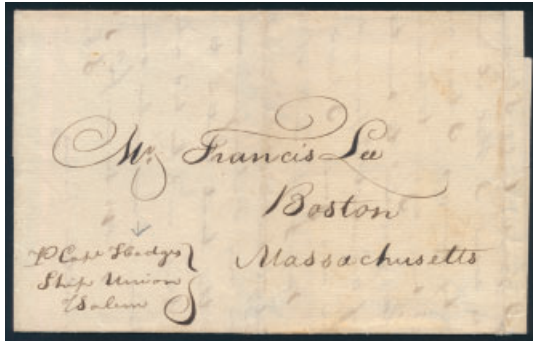 Mr. Francis Lee
Boston
Massachusetts
P Capt Hodges
Ship Union
Salem